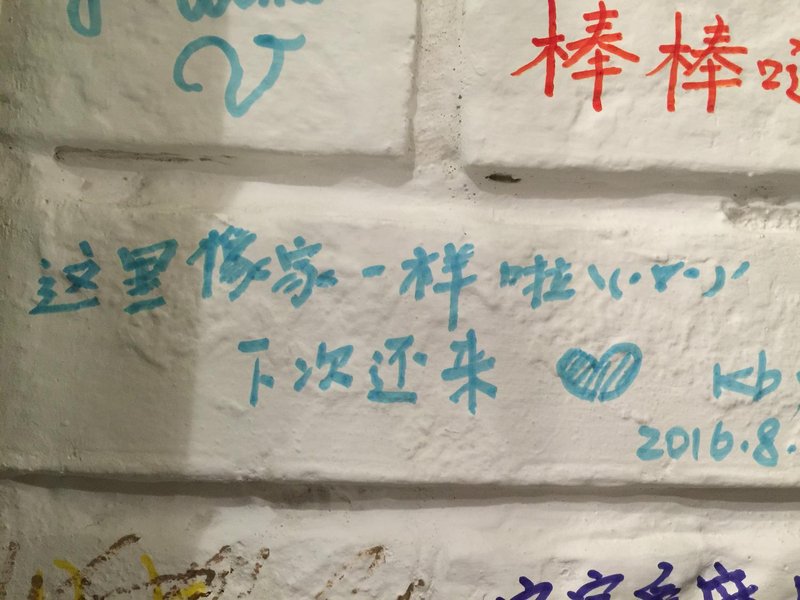 棒棒
这里像家一样啦ヽ(·∀·)ノ
下次还来
Kb
2016.8.